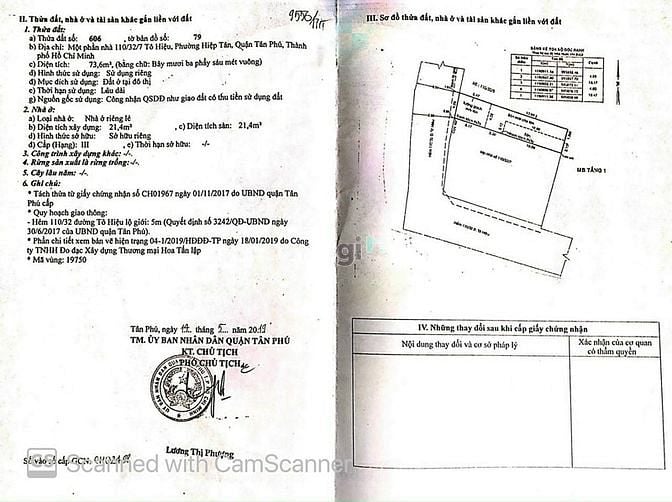 II. Thửa đất, nhà ở và tài sản khác gắn liền với đất
1. Thửa đất:
a) Thửa đất số: 606 , tờ bản đồ số: 79
b) Địa chỉ: Một phần nhà 110/32/7 Tô Hiệu, Phường Hiệp Tân, Quận Tân Phú, Thành
phố Hồ Chí Minh
c) Diện tích: 73,6m², (bằng chữ: Bảy mươi ba phẩy sáu mét vuông)
d) Hình thức sử dụng: Sử dụng riêng
đ) Mục đích sử dụng: Đất ở tại đô thị
e) Thời hạn sử dụng: Lâu dài
g) Nguồn gốc sử dụng: Công nhận QSDĐ như giao đất có thu tiền sử dụng đất
2. Nhà ở:
a) Loại nhà ở: Nhà ở riêng lẻ
b) Diện tích xây dựng: 21,4m², c) Diện tích sàn: 21,4m²
d) Hình thức sở hữu: Sở hữu riêng
đ) Cấp (Hạng): III e) Thời hạn sở hữu: -/-
3. Công trình xây dựng khác: -/-
4. Rừng sản xuất là rừng trồng: -/-
5. Cây lâu năm: -/-
6. Ghi chú:
* Tách thửa từ giấy chứng nhận số CH01967 ngày 01/11/2017 do UBND quận Tân
Phú cấp
* Quy hoạch giao thông:
- Hẻm 110/32 đường Tô Hiệu lộ giới: 5m (Quyết định số 3242/QĐ-UBND ngày
30/6/2017 của UBND quận Tân Phú).
* Phần chi tiết xem bản vẽ hiện trạng 04-1/2019/HĐĐĐ-TP ngày 18/01/2019 do Công
ty TNHH Đo đạc Xây dựng Thương mại Hoa Tấn lập
* Mã vùng: 19750
Tân Phú, ngày tháng năm 2019
TM. ỦY BAN NHÂN DÂN QUẬN TÂN PHÚ
KT. CHỦ TỊCH
PHÓ CHỦ TỊCH
Lương Thị Phượng
Số vào sổ cấp GCN:
Scanned with CamScanner
III. Sơ đồ thửa đất, nhà ở và tài sản khác gắn liền với đất
BẢNG KÊ TỌA ĐỘ GÓC RANH
MB TẦNG 1
IV. Những thay đổi sau khi cấp giấy chứng nhận
Nội dung thay đổi và cơ sở pháp lý
Xác nhận của cơ quan
có thẩm quyền